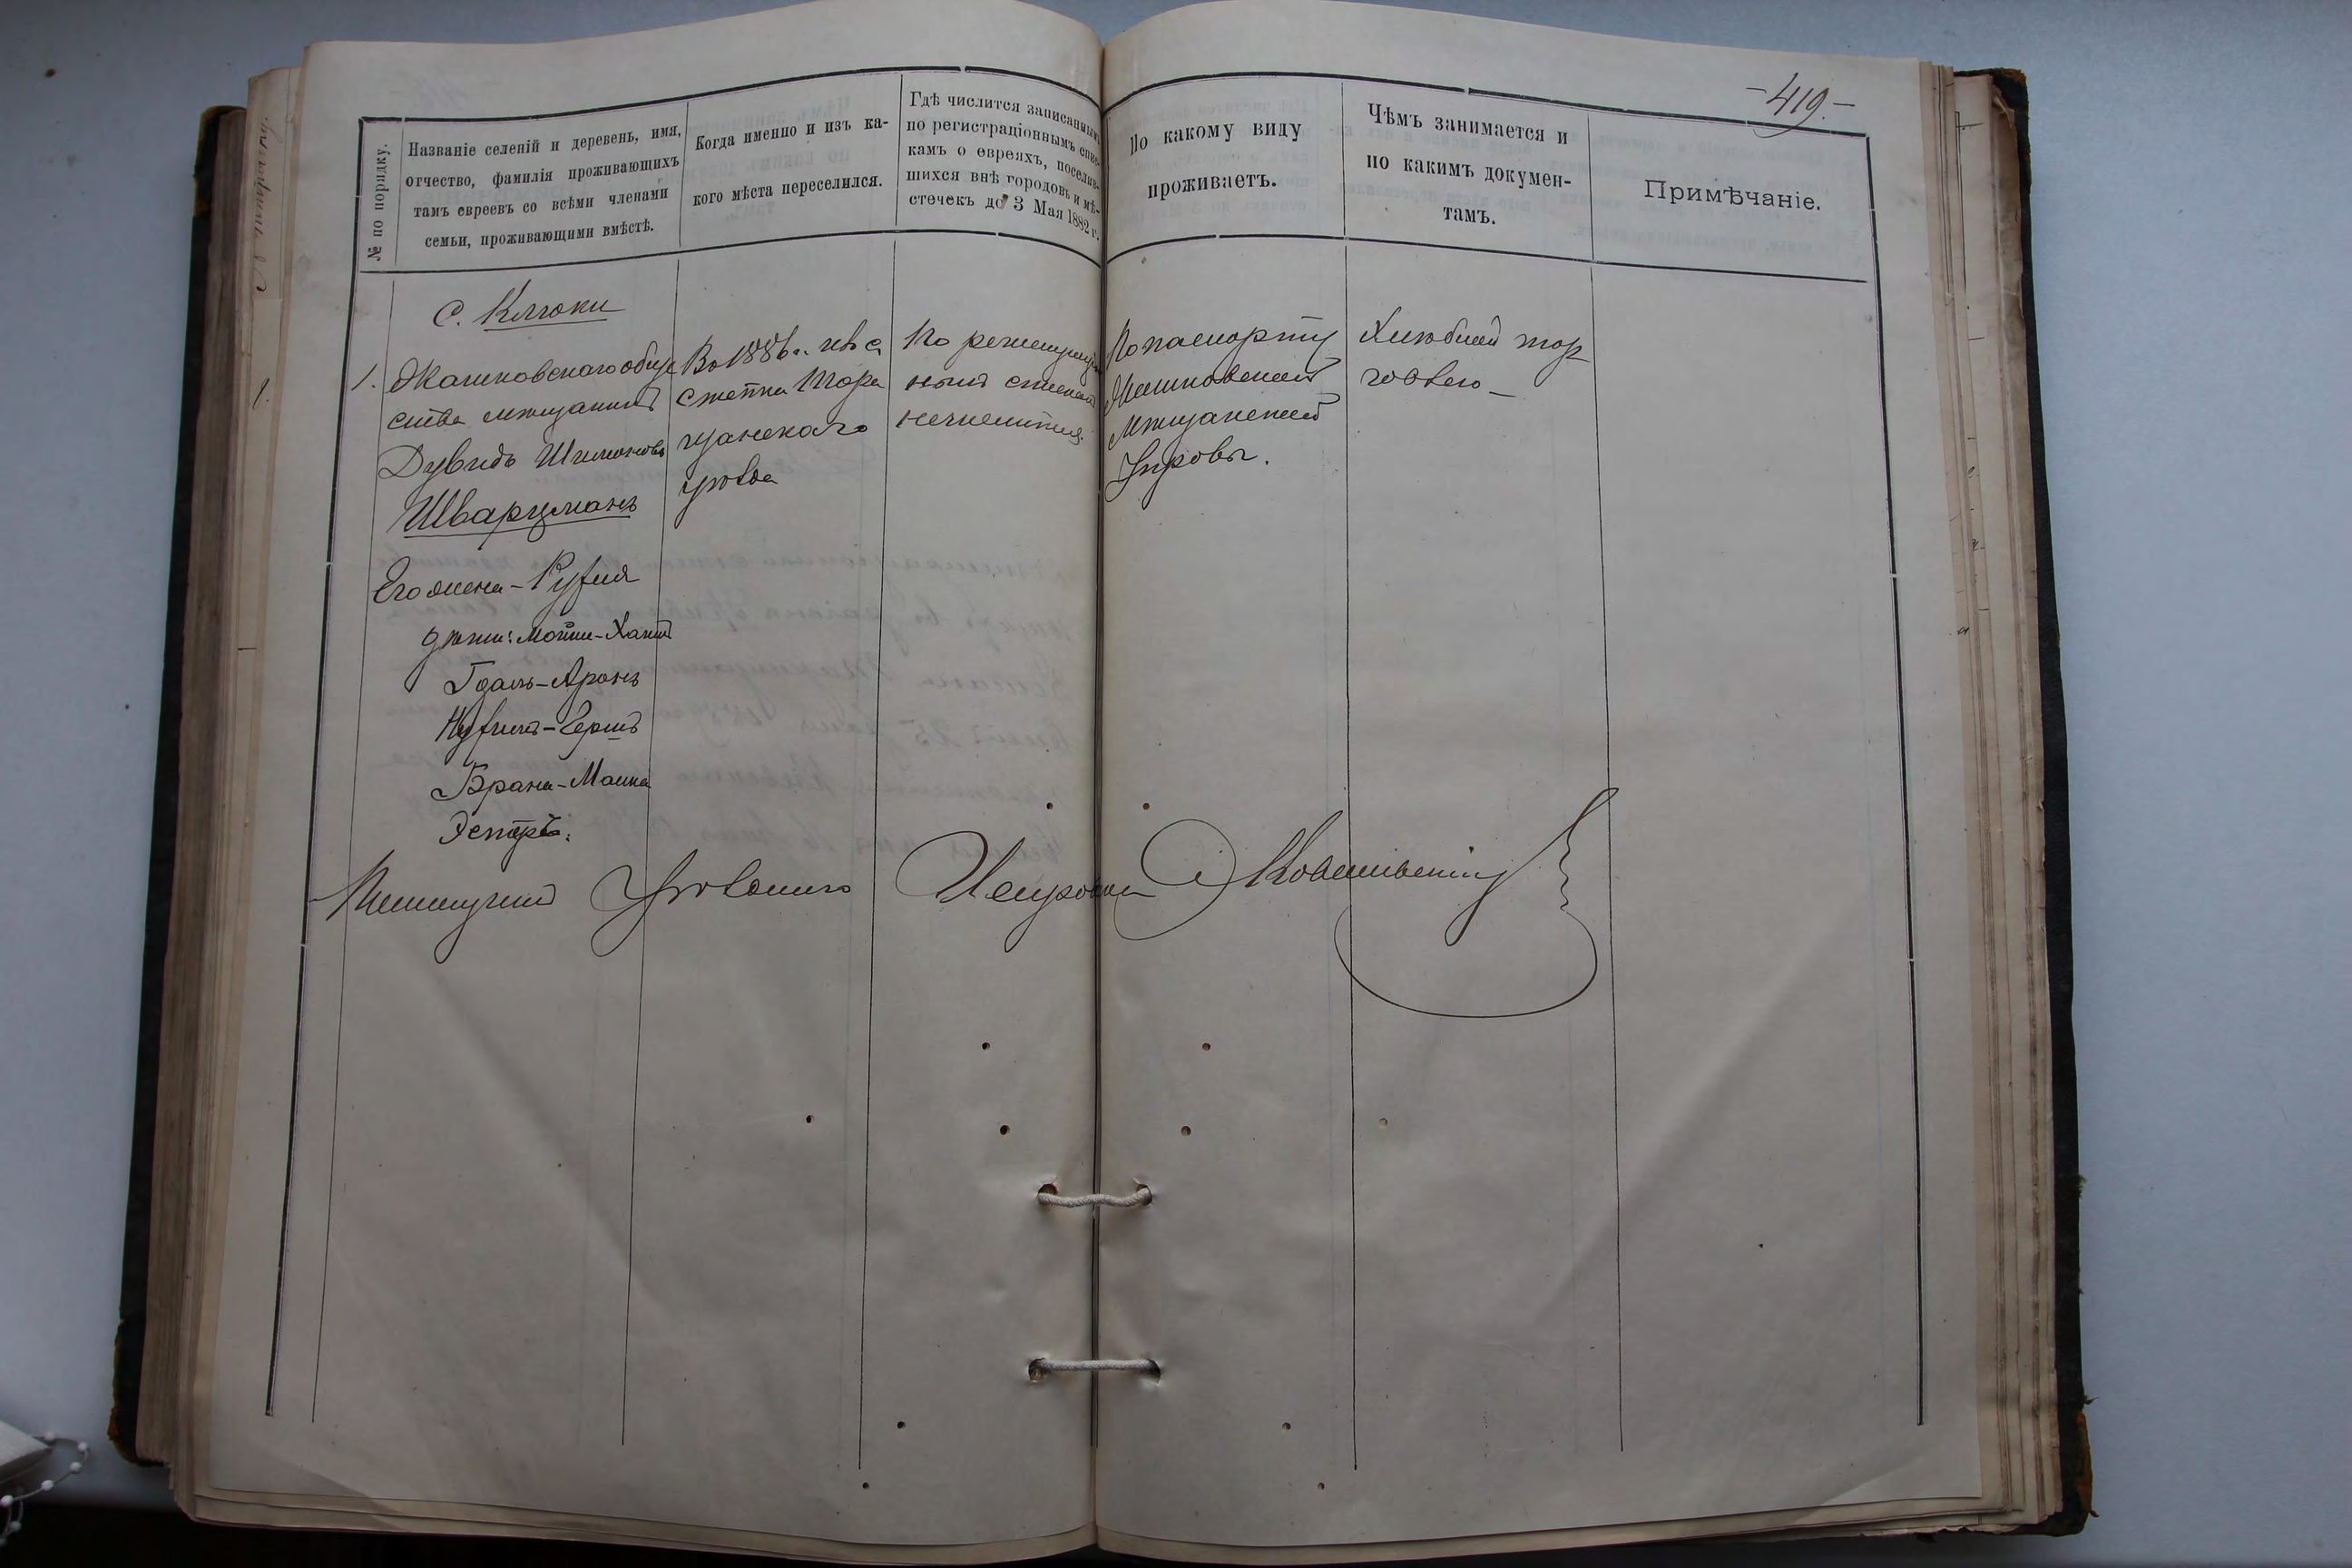 -419.-
№ по порядку.
Названіе селеній и деревень, имя,
отчество, фамилія проживающихъ
тамъ евреевъ со всѣми членами
семьи, проживающими вмѣстѣ.
Когда именно и изъ ка-
кого мѣста переселился.
Гдѣ числится записаннымъ
по регистраціоннымъ спис-
камъ о евреяхъ, поселив-
шихся внѣ городовъ и мѣ-
стечекъ до 3 Мая 1882 г.
По какому виду
проживаетъ.
Чѣмъ занимается и
по какимъ докумен-
тамъ.
Примѣчаніе.
С. Клюки
1.
общe
ства мѣщанинъ
Дувидъ Шимоновъ
Шварцманъ
Его жена - Рухля
дѣти: Мотти-Хаимъ
Гдаль-Аронъ
Нухимъ-Гершъ
Брана-Малка
Эстеръ.
Въ 1886 г. изъ с
Тора
щанскаго
уѣзда
По регистрац
нымъ спискам
нечислится.
По паспорту
мѣщанской
Управы.
Хлѣбной тор
говлею -
Уѣзднаго